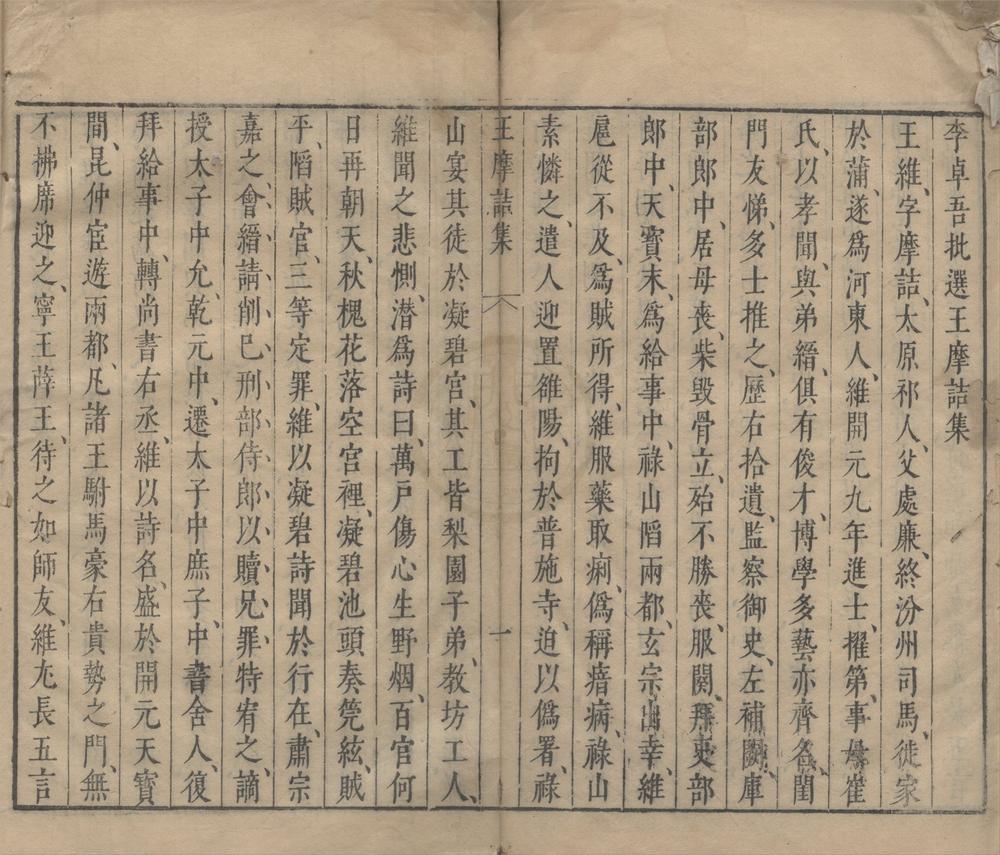 李卓吾批選王摩詰集
王維、字摩詰、太原祁人、父處廉、終汾州司馬、徙家
於蒲、遂爲河東人、維開元九年進士、擢第、事母崔
氏、以孝聞、與弟縉、俱有俊才、博學多藝亦齊名、閨
門友悌、多士推之、歷右拾遺、監察御史、左補闕、庫
部郎中、居母喪、柴毀骨立、殆不勝喪、服闋、拜吏部
郎中、天寶末、爲給事中、祿山陷兩都、玄宗出幸、維
扈從不及、爲賊所得、維服藥取痢、僞稱瘖病、祿山
素憐之、遣人迎置雒陽、拘於普施寺、迫以僞署、祿
王摩詰集 一
山宴其徒於凝碧宮、其工皆梨園子弟、教坊工人、
維聞之悲惻、潜爲詩曰、萬戶傷心生野烟、百官何
日再朝天、秋槐花落空宮裡、凝碧池頭奏筦絃、賊
平、陷賊官、三等定罪、維以凝碧詩聞於行在、肅宗
嘉之、會縉請削已刑部侍郎以贖兄罪、特宥之、謫
授太子中允、乾元中、遷太子中庶子、中書舍人、復
拜給事中、轉尚書右丞、維以詩名、盛於開元天寶
間、昆仲宦遊兩都、凡諸王駙馬豪右貴勢之門、無
不拂席迎之、寧王薛王、待之如師友、維尤長五言